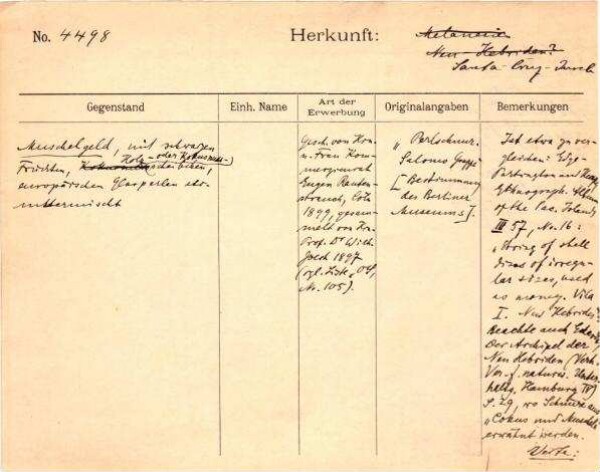 No. 4498
Herkunft:
Melanesien
Neu-Hebriden?
Santa-Cruz-Inseln
Gegenstand
Einh. Name
Art der Erwerbung
Originalangaben
Bemerkungen
Muschelgeld, mit schwarzen
Holz- oder Kokosnuss-
Früchten, scheibchen,
europäischen Glasperlen etc.
untermischt
Gesch. von Kom-
u. Frau Kom-
merzienrat
Eugen Rauten-
strauch, Cöln
1899, gesam-
melt von
Prof. Dr Wilh.
Joest 1897
(vgl. Liste
Nr. 105).
„Perlschnur.
Salomo
[Bestimmung
des Berliner
Museums].
Ist etwa zu ver-
gleichen: Edge-
Partington and
Ethnograph. Album
of the Pac. Islands
III 57, No. 16:
„String of shell
discs of irregu-
lar sizes, used
as money. Vila
I. Neu Hebriden
Beachte auch
Der Archipel der
Neu Hebriden (Verh.
Ver. f. naturw. Unter-
haltg. Hamburg IV)
S. 29, wo Schnüre aus
„Cokus und Muscheln
erwähnt werden.